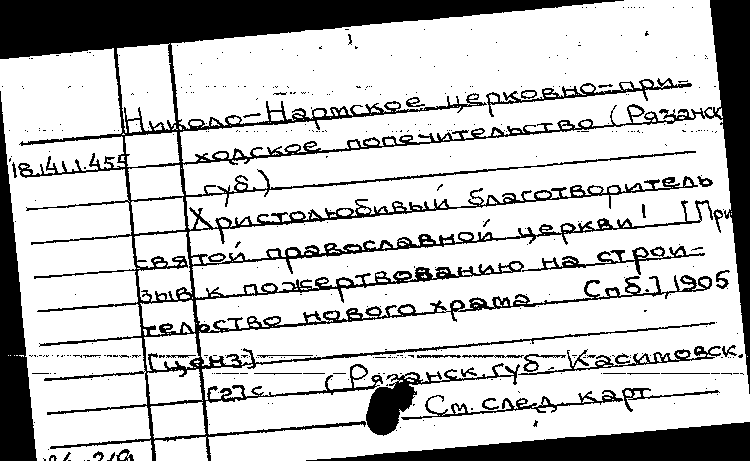 Николо-Нармское церковно-при-
18.141.1.455 ходское попечительство (Рязанск.
губ.)
Христолюбивый благотворитель
святой православной церкви! [При
зыв к пожертвованию на строи-
тельство нового храма. Спб.], 1905
[ценз.]
[2] с. (Рязанск. губ. Касимовск.
См. след. карт.